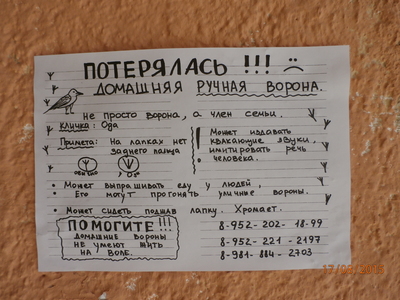 ПОТЕРЯЛАСЬ !!!
ДОМАШНЯЯ РУЧНАЯ ВОРОНА.
Не просто ворона, а член семьи.
Кличка: Ода
Примета: На лапках нет
заднего пальца
обычно
Ода
! Может издавать
квакающие звуки,
имитировать речь
человека.
• Может выпрашивать еду у людей,
• Его могут прогонять уличные вороны.
• Может сидеть поджав лапку. Хромает.
ПОМОГИТЕ!!!
ДОМАШНИЕ ВОРОНЫ
НЕ УМЕЮТ ЖИТЬ
НА ВОЛЕ.
8-952-202-18-99
8-952-221-2197
8-981-884-2703